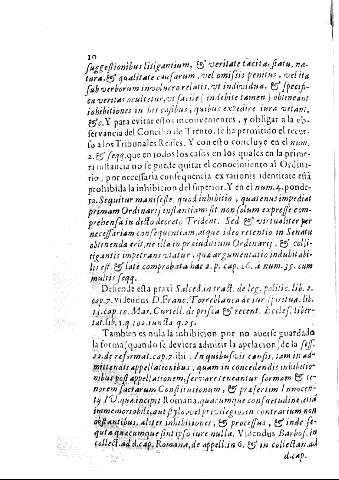 10
suggestionibus litigantium, & veritate tacita, statu, na-
tura, & qualitate causarum, vel omissis penitus, vel ita
sub verborum involucro relatis, ut individua, & specifi-
ca veritas occuletur, ut facilè (indebite tamen) obtineant
inhibitiones in his casibus, quibus expedire iura vetant,
&c. Y para evitar estos inconvenientes, y obligar a la ob-
servancia del Concilio de Trento, se ha permitido el recur-
so a los Tribunales Reales. Y con esto concluye en el num.
2. & seqq. que en todos los casos en los quales en la prime-
ra instancia no se puede quitar el conocimiento al Ordina-
rio, por necessaria consequencia ex rationis identitate està
prohibida la inhibicion del superior. Y en el num. 4. ponde-
ra. Sequitur manifestè, quod inhibitio, quatenus impediat
primam Ordinarij instantiam, sit non solum expresse com-
prehensa in dicto decreto Trident. Sed & virtualiter per
necessariam consequentiam, atque ideo retentio in Senatu
obtinenda erit, ne illa in praeiudicium Ordinarij, & colli-
tigantis impetrans utatur, qua argumentatio indubitabi-
lis est, & latè comprobata hac 2. p. cap. 26. à num. 35. cum
multis seqq.
Defiende esta praxi Salced. in tract. de leg. politic. lib. 2.
cap. 7. videndus D. Franc. Torreblanca de iur. spiritua. lib.
15. cap. 10. Mar. Curtell. de prisca & recent. Eccles. liber-
tat. lib. 1. q. 102. iuncta q. 25.
Tambien es nula la inhibicion por no averse guardado
la forma, quando se deviera admitir la apelacion, de la sess.
22. de reformat. cap. 7. ibi. In quibusvis causis, tam in ad-
mittendis appellationibus, quam in concedendis inhibitio-
nibus post appellationem, servare teneantur formam & te-
norem sacrarum Constitutionum, & praesertim Innocen-
ty IV. qua incipit Romana, quacumque consuetudine, etiã
immemorabile, aut stylo, vel privilegio, in contrarium non
obstantibus, aliter inhibitiones, & processus, & inde se-
quuta quaecumque sint ipso iure nulla. Videndus Barbos. in
collect. ad d. cap. Romana, de appell. in 6. & in collectan. ad
d. cap.